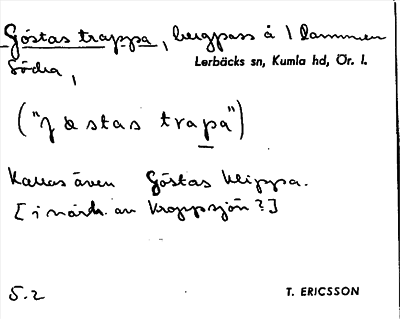 Göstas trappa, bergpass å 1 Dammen
Södra,
Lerbäcks sn, Kumla hd, Ör. l.
("jøstas trapa")
Kallas även Göstas klippa.
[i närh. av Kroppsjön?]
5.2
T. ERICSSON